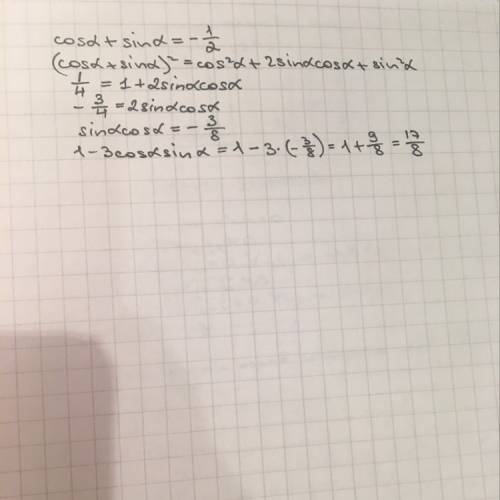 cosα + sinα = -1/2
(cosα + sinα)² = cos²α + 2sinαcosα + sin²α
1/4 = 1 + 2sinαcosα
-3/4 = 2sinαcosα
sinαcosα = -3/8
1 - 3cosαsinα = 1 - 3·(-3/8) = 1 + 9/8 = 17/8